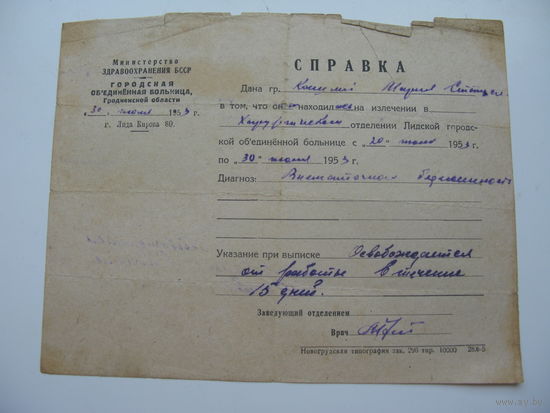 Министерство
ЗДРАВООХРАНЕНИЯ БССР
ГОРОДСКАЯ
ОБ'ЕДИНЕННАЯ БОЛЬНИЦА,
Гродненской области
„30" июля 1953 г.
г. Лида Кирова 80.
СПРАВКА
Дана гр.
в том, что он находил на излечении в
Хирургическом отделении Лидской городс-
кой об'единённой больнице с „20" июля 1953 г.
по „30" июля 1953 г.
Диагноз: Внематочная беременность
Указание при выписке Освобождается
от работы в течение
15 дней.
Заведующий отделением
Врач
Новогрудская типография зак. 298 тир. 10000 28.6-5
www.ay.by